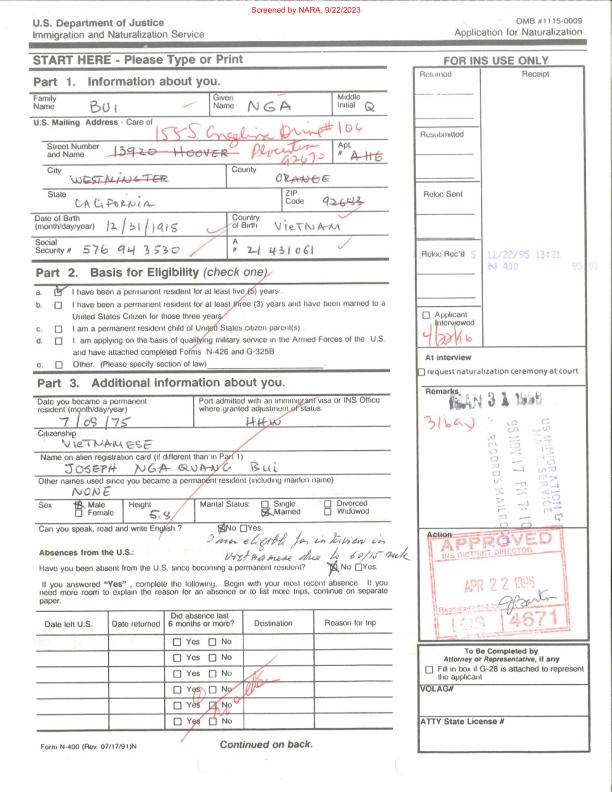 Screened by NARA, 9/22/2023
U.S. Department of Justice
Immigration and Naturalization Service
OMB #1115-0009
Application for Naturalization
START HERE - Please Type or Print
Part 1. Information about you.
Family Name BUI Given Name NGA Middle Initial Q
U.S. Mailing Address - Care of
1555 Angelina Drive # 106
Street Number and Name 13920 HOOVER Placentia 92670 Apt. # A-116
City WESTMINSTER County ORANGE
State CALIFORNIA ZIP Code 92683
Date of Birth (month/day/year) 12/31/1915 Country of Birth VIETNAM
Social Security # 576 94 3530 A # 21 431061
Part 2. Basis for Eligibility (check one).
a. I have been a permanent resident for at least five (5) years.
b. I have been a permanent resident for at least three (3) years and have been married to a
United States Citizen for those three years.
c. I am a permanent resident child of United States citizen parent(s).
d. I am applying on the basis of qualifying military service in the Armed Forces of the U.S.
and have attached completed Forms N-426 and G-325B
e. Other. (Please specify section of law)
Part 3. Additional information about you.
Date you became a permanent resident (month/day/year) Port admitted with an immmigrant visa or INS Office where granted adjustment of status.
7/09/75 HHW
Citizenship
VIETNAMESE
Name on alien registration card (if different than in Part 1)
JOSEPH NGA QUANG BUI
Other names used since you became a permanent resident (including maiden name)
NONE
Sex Male Female Height 5.8 Marital Status: Single Married Divorced Widowed
Can you speak, read and write English ? No Yes.
I am eligible for interview in
Vietnamese due to 60/15 rule
Absences from the U.S.:
Have you been absent from the U.S. since becoming a permanent resident? No Yes.
If you answered "Yes" , complete the following, Begin with your most recent absence. If you
need more room to explain the reason for an absence or to list more trips, continue on separate
paper.
Date left U.S. Date returned Did absence last 6 months or more? Destination Reason for trip
Yes No
Yes No
Yes No
Yes No
Yes No
Yes No
Form N-400 (Rev. 07/17/91)N
Continued on back.
FOR INS USE ONLY
Returned Receipt
Resubmitted
Reloc Sent
Reloc Rec'd S 11/22/95 13:21
N 400
Applicant Interviewed
4/22/96
At interview
request naturalization ceremony at court
Remarks
JAN 31
US IMMIGRATION &
NATZ SERVICE
95 NOV 17 PM 7:10
RECORDS MAILROOM
Action
APPROVED
INS DISTRICT DIRECTOR
APR 22 1996
LOS 4671
To Be Completed by
Attorney or Representative, if any
Fill in box if G-28 is attached to represent
the applicant
VOLAG#
ATTY State License #